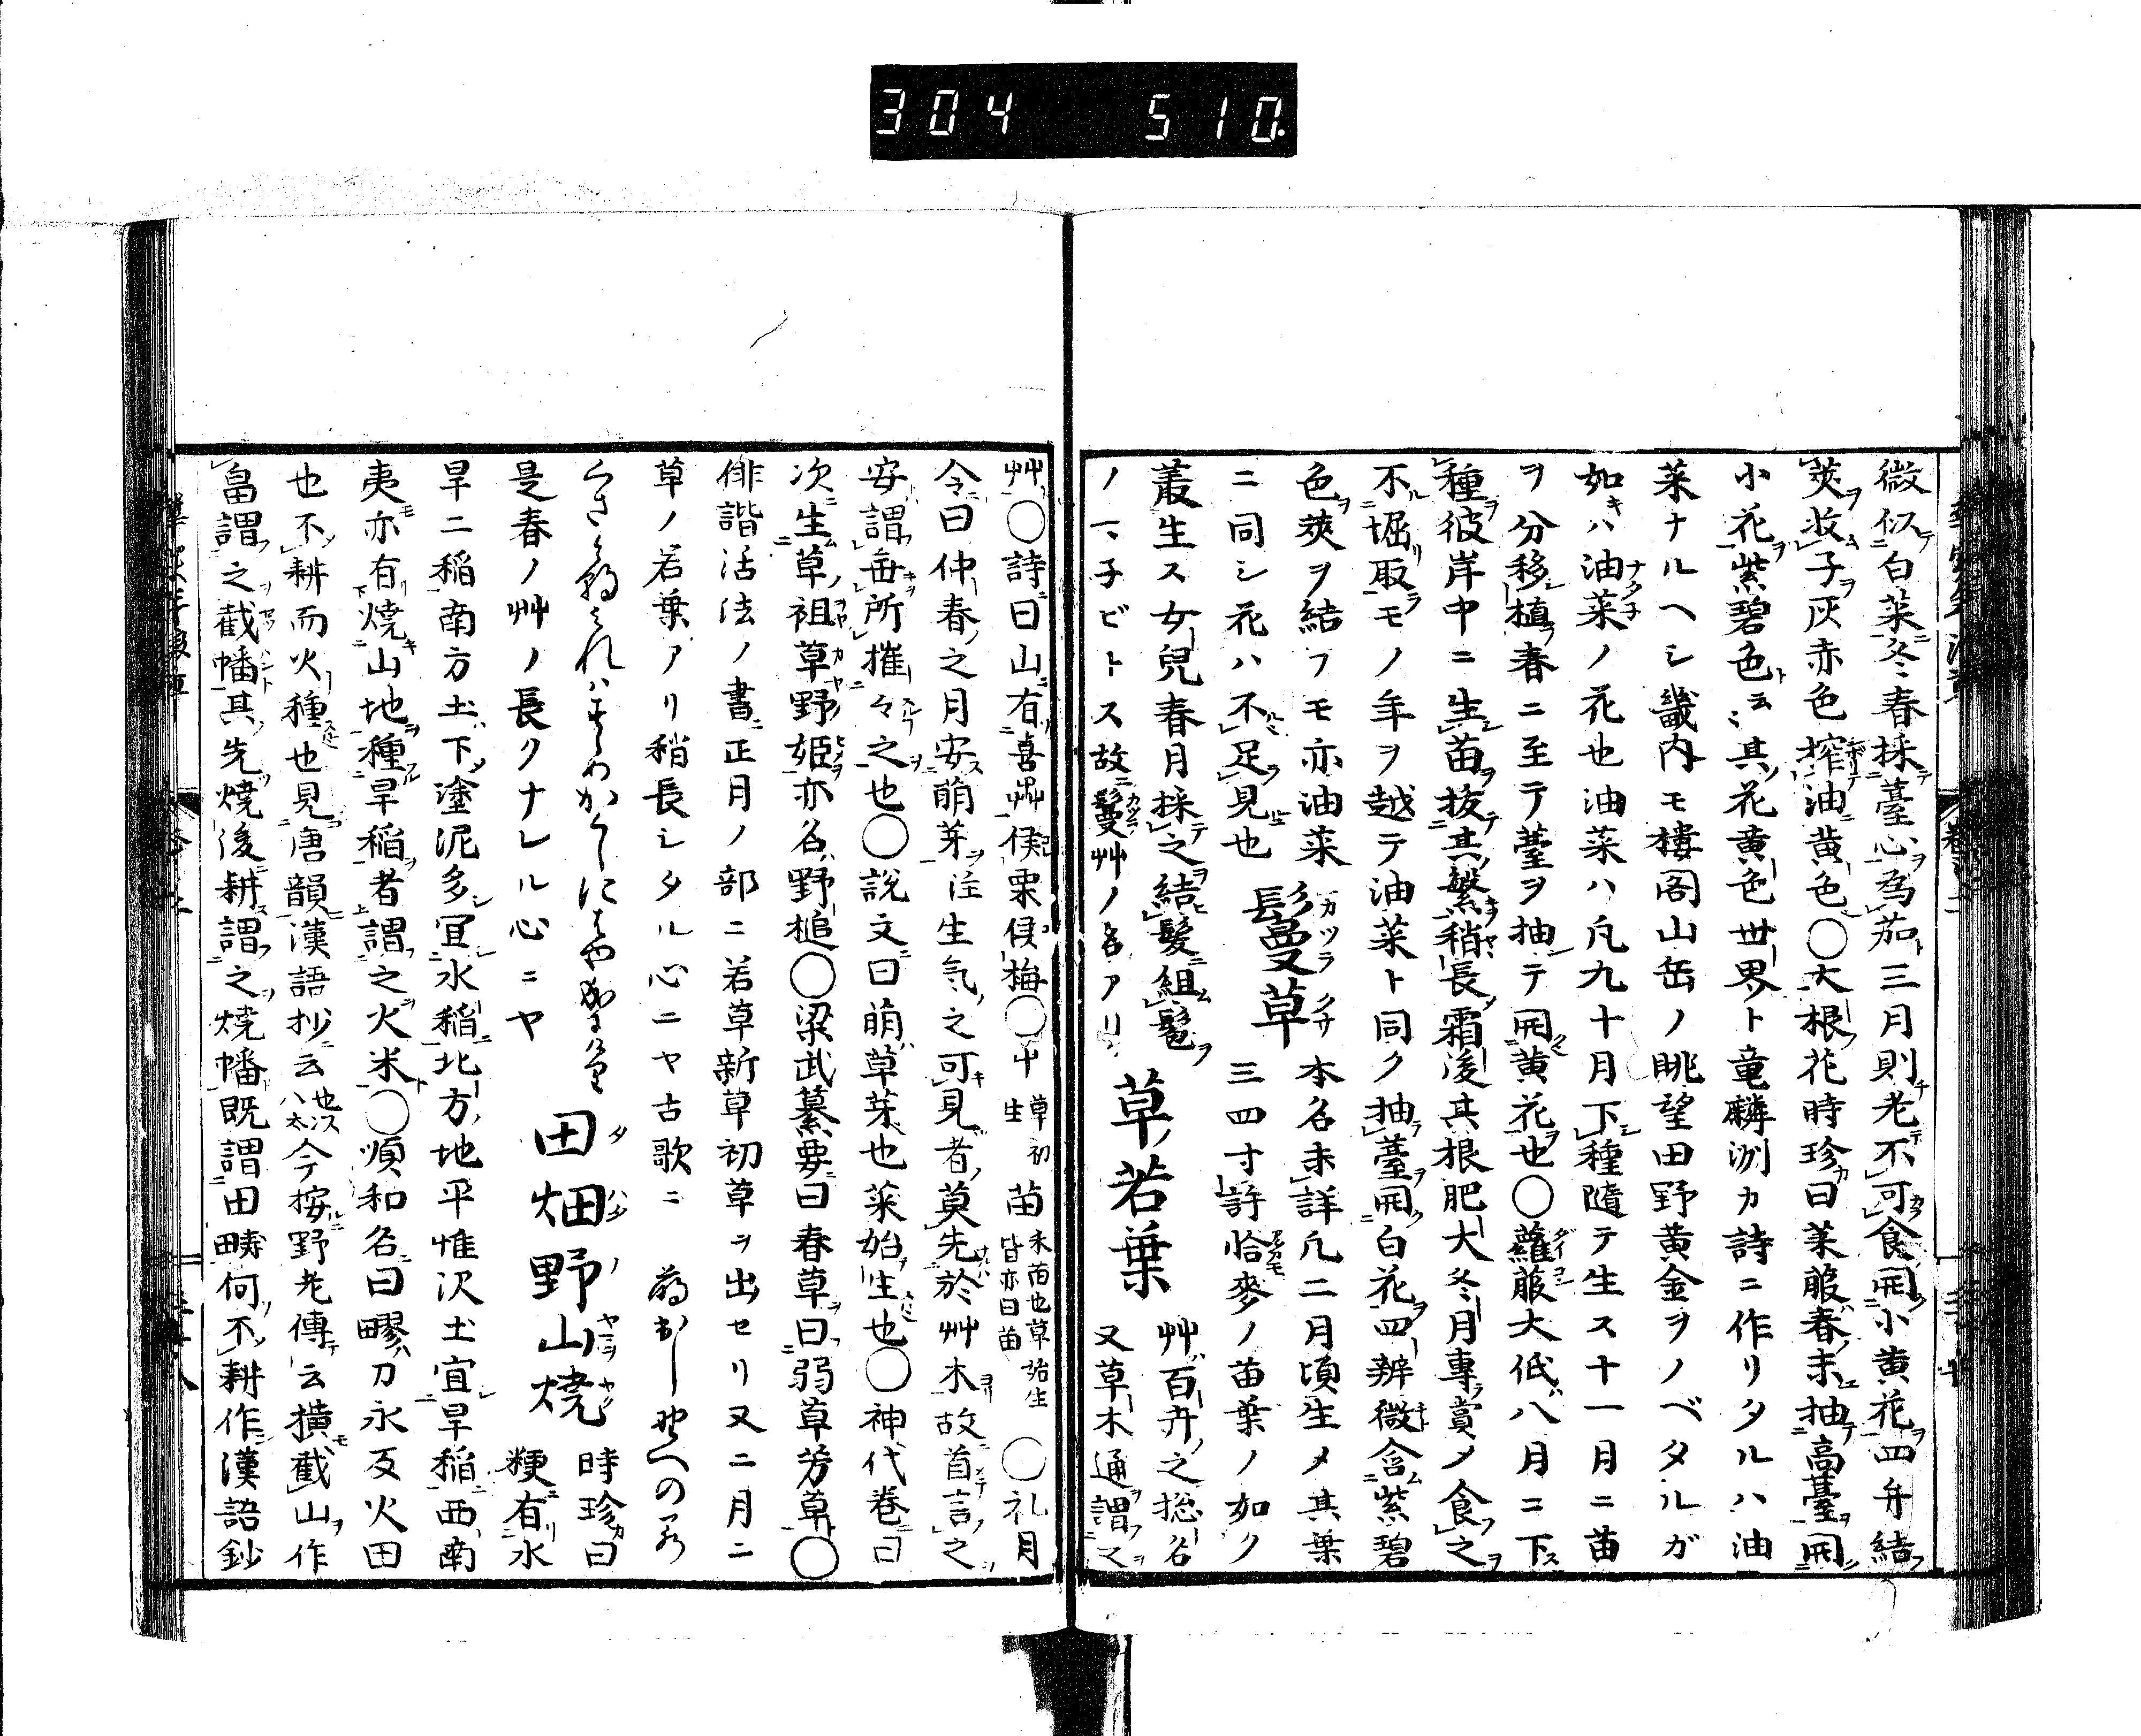 304 510
微似白菜冬春採薹心為茹三月則老不可食開小黄花四弁結
莢收子灰赤色搾油黄色○大根花時珍曰莱服春末抽高薹開
小花紫碧色云々其花黄色世界ト竜麟洲カ詩ニ作リタルハ油
菜ナルヘシ畿内モ樓閣山岳ノ眺望田野黄金ヲノベタルガ
如キハ油菜ノ花也油菜ハ凡九十月下種隨テ生ス十一月ニ苗
ヲ分移植春ニ至テ薹ヲ抽テ開黄花也○蘿服大低八月ニ下
種彼岸中ニ生苗抜其繁稍長霜後其根肥大冬月專賞メ食之
不堀取モノ年ヲ越テ油菜ト同ク抽薹開白花四辨微含紫碧
色莢ヲ結フモ亦油菜
ニ同シ花ハ不足見也
鬘草
カツラクサ
本名未詳凡二月頃生メ其葉
三四寸許恰麥ノ苗葉ノ如ク
叢生ス女兒春月採之結髮組鬠
ノ一子ビトス故鬘艸ノ名アリ
草若葉
艸百卉之総名
又草木通謂之
艸○詩曰山有喜艸侯栗侯梅○屮
草初
生
苗
未苗也草始生
皆亦曰苗
○礼月
令曰仲春之月安萌芽注生気之可見者莫先於艸木故首言之
安謂毎所摧々之也○説文曰萌草芽也菜始生也○神代巻曰
次生草祖草野姫亦名野槌○梁武纂要曰春草曰弱草芳草○
俳諧活法ノ書正月ノ部ニ若草新草初草ヲ出セリ又二月ニ
草ノ若葉アリ稍長シタル心ニヤ古歌ニ
是春ノ艸ノ長クナレル心ニヤ
田畑野山焼
タハタノヤマヲヤク
時珍曰
粳有水
旱二稲南方土下塗泥多宜水稲北方地平惟沢土宜旱稲西南
夷亦有焼山地種旱稲者謂之火米○順和名曰疁力永反火田
也不耕而火種也見唐韻漢語抄云
今按野老傳云横截山作
畠謂之截幡其先焼後耕謂之焼幡既謂田疇何不耕作漢語鈔